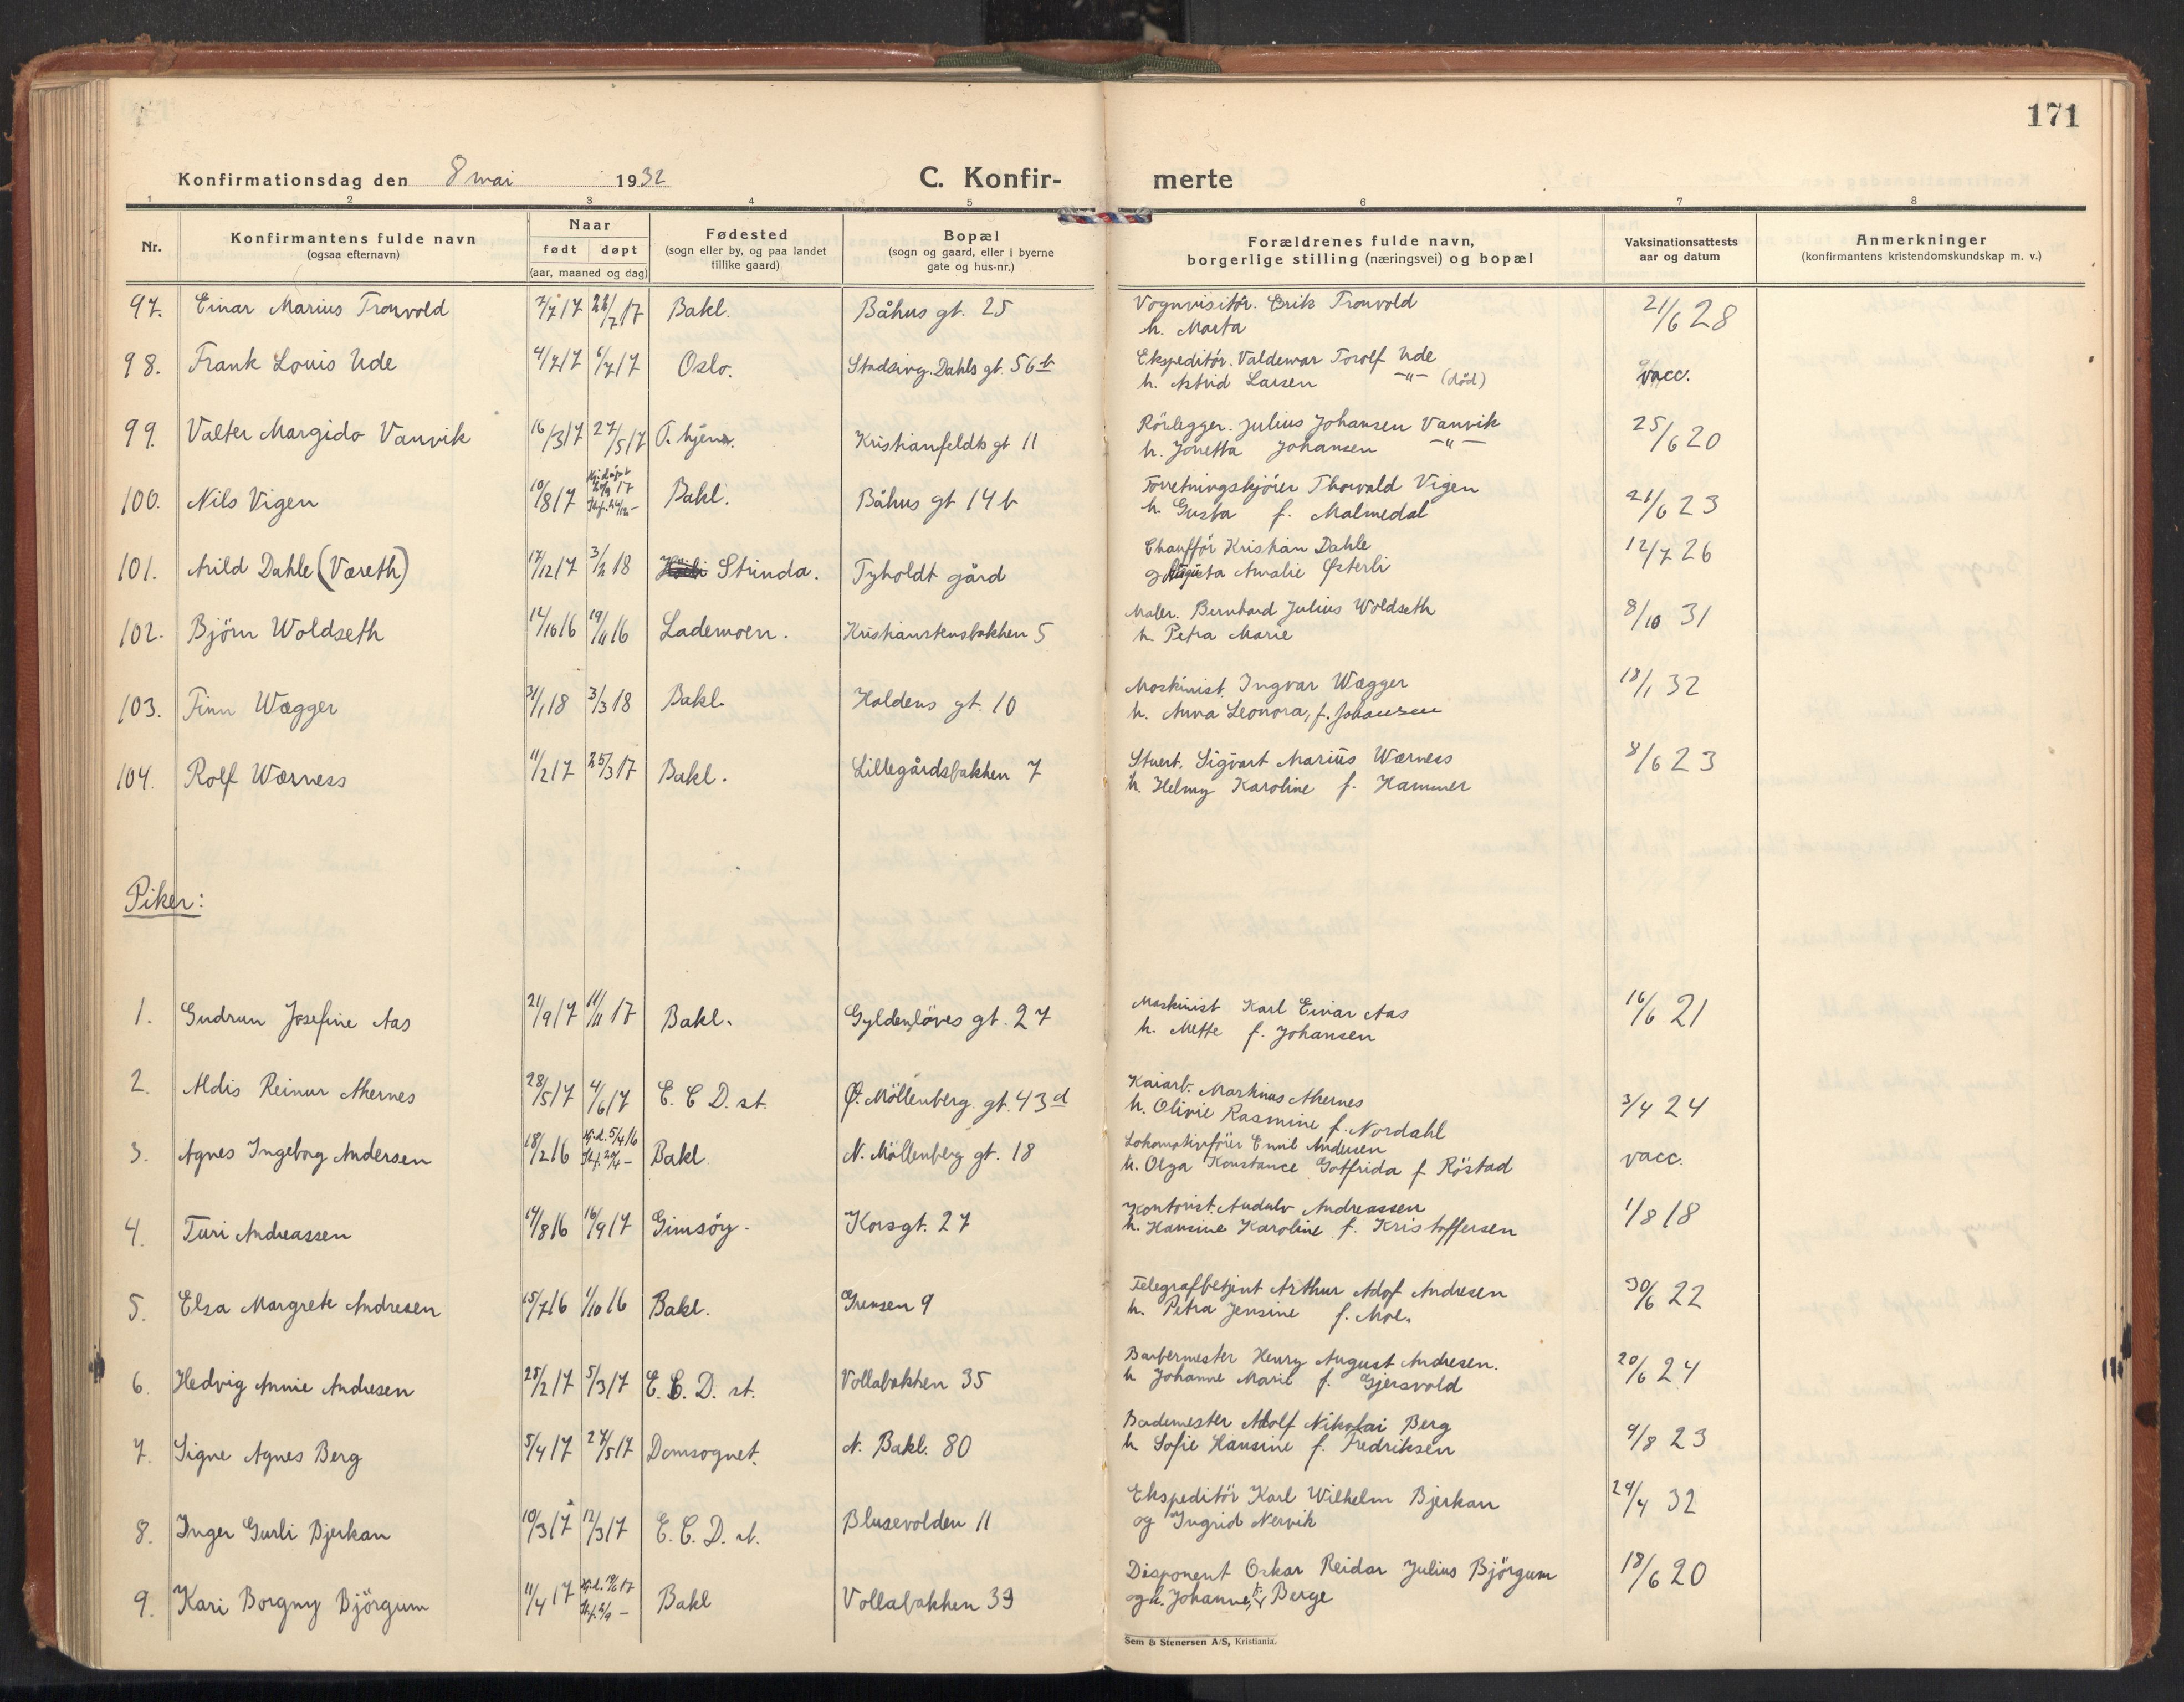 171
Konfirmationsdag den 8 mai 1932 C. Konfir- merte
1 2 3 4 5 6 7 8
Nr. Konfirmantens fulde navn (ogsaa efternavn) Naar født døpt (aar, maaned og dag) Fødested (sogn eller by, og paa landet tillike gaard) Bopæl (sogn og gaard, eller i byerne gate og hus-nr.) Forældrenes fulde navn, borgerlige stilling (næringsvei) og bopæl Vaksinationsattests aar og datum Anmerkninger (konfirmantens kristendomskundskap m. v.)
97. Einar Marius Tronvold 7/7 17 22/7 17 Bakl. Båhus gt. 25 Vognvisitör. Erik Tronvold 21/6 28
h. Marta
98. Frank Louis Ude 4/7 17 6/7 17 Oslo. Stadsing. Dahls gt. 56 b Ekspeditör. Valdemar Torolf Ude vacc.
h. Astrid Larsen -"- (död)
99. Valter Margido Vanvik 16/3 17 27/5 17 T. hjem. Kristianfeldts gt 11 Rörlegger. Julius Johansen Vanvik 25/6 20
h. Jonetta Johansen -"-
100. Nils Vigen 10/8 17 Bakl. Båhus gt 14 b Forretningskjörer Thorvald Vigen 21/6 23
h. Gusta f. Malmedal
101. Arild Dahle (Væreth) 17/12 17 3/2 18 Strinda. Tyholdt gård Chaufför Kristian Dahle 12/7 26
og Augusta Amalie Østerli
102. Björn Woldseth 14/10 16 19/11 16 Lademoen. Kristianstensbakken 5 Maler. Bernhard Julius Woldseth 8/10 31
h. Petra Marie
103. Finn Wægger 31/1 18 3/3 18 Bakl. Haldens gt. 10 Maskinist. Ingvar Wægger 18/1 32
h. Anna Leonora, f. Johansen
104. Rolf Wærness 11/2 17 25/3 17 Bakl. Lillegårdsbakken 7 Stuert. Sigvart Marius Wærness 8/6 23
h. Helmy Karoline f. Hammer
Piker:
1. Gudrun Josefine Aas 21/9 17 11/11 17 Bakl. Gyldenlöves gt. 27 Maskinist Karl Einar Aas 16/6 21
h. Mette f. Johansen
2. Aldis Reinur Akernes 28/5 17 4/6 17 E. C D. st. Ø. Möllenberg. gt. 43 d Kaiarb. Markinus Akernes 3/4 24
h. Olivie Rasmine f. Nordahl
3. Agnes Ingeborg Andersen 18/2 16 Hj.d. 5/4 16 Bakl. N. Möllenberg gt. 18 Lokomotivfører Emil Andersen vacc.
h. Olga Konstance Gotfrida f Röstad
4. Turi Andreassen 14/8 16 16/9 17 Gimsöy. Korsgt. 27 Kontorist. Audulv Andreassen 1/8 18
h. Hansine Karoline f. Kristoffersen
5. Elsa Margrete Andresen 15/7 16 1/10 16 Bakl. Grensen 9 Telegrafbetjent Arthur Adof Andresen 30/6 22
h. Petra Jensine f. Moe.
6. Hedvig Annie Andresen 25/2 17 5/3 17 E. C. D. st. Vollabakken 35 Barbermester Henry August Andresen. 20/6 24
h Johanne Marie f. Gjersvold
7. Signe Agnes Berg 5/4 17 27/5 17 Domsognet. N. Bakl. 80 Bademester Adolf Nikolai Berg 9/8 23
h Sofie Hansine f. Fredriksen
8. Inger Gurli Bjerkan 10/3 17 12/3 17 E. C. D. st. Blusevolden 11 Ekspeditör Karl Wilhelm Bjerkan 29/4 32
og Ingrid Nervik
9. Kari Borgny Björgum 11/4 17 Bakl Vollabakken 39 Disponent Oskar Reidar Julius Björgum 18/6 20
og h. Johanne, f. Berge
Sem & Stenersen A/S, Kristiania.